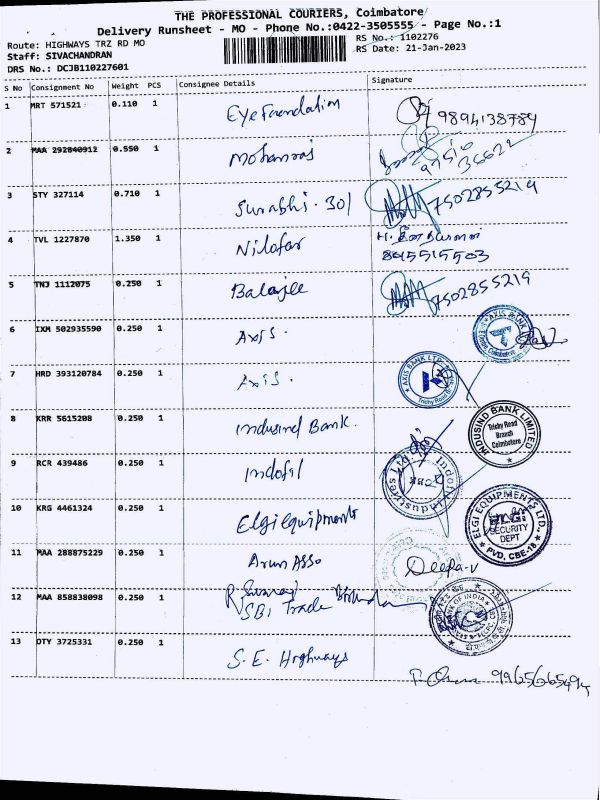 THE PROFESSIONAL COURIERS, Coimbatore
Delivery Runsheet - MO - Phone No.:0422-3505555 - Page No.:1
Route: HIGHWAYS TRZ RD MO
RS No.: 1102276
Staff: SIVACHANDRAN
RS Date: 21-Jan-2023
DRS No.: DCJB110227601
S No Consignment No Weight PCS Consignee Details Signature
1 MRT 571521 0.110 1 Eye Foundation 9894138784
2 MAA 292840912 0.550 1 Mohanraj
3 STY 327114 0.710 1 Surabhi . 301 7502855219
4 TVL 1227870 1.350 1 Nilofar
8945515503
5 TNJ 1112075 0.250 1 Balajee 7502855219
6 IXM 502935590 0.250 1 Axis . AXIS BANK
7 HRD 393120784 0.250 1 Axis . AXIS BANK LTD Trichy Road
8 KRR 5615208 0.250 1 Indusind Bank. INDUSIND BANK LIMITED Trichy Road Branch Coimbatore
9 RCR 439486 0.250 1 Indofil Indofil Industries Ltd.
10 KRG 4461324 0.250 1 Elgi Equipments ELGI EQUIPMENTS LTD., SECURITY DEPT PVD, CBE-18
11 MAA 288875229 0.250 1 Arun Asso Deepa-v
12 MAA 858838098 0.250 1 SBI Trade BANK OF INDIA
13 DTY 3725331 0.250 1 S.E. Highways